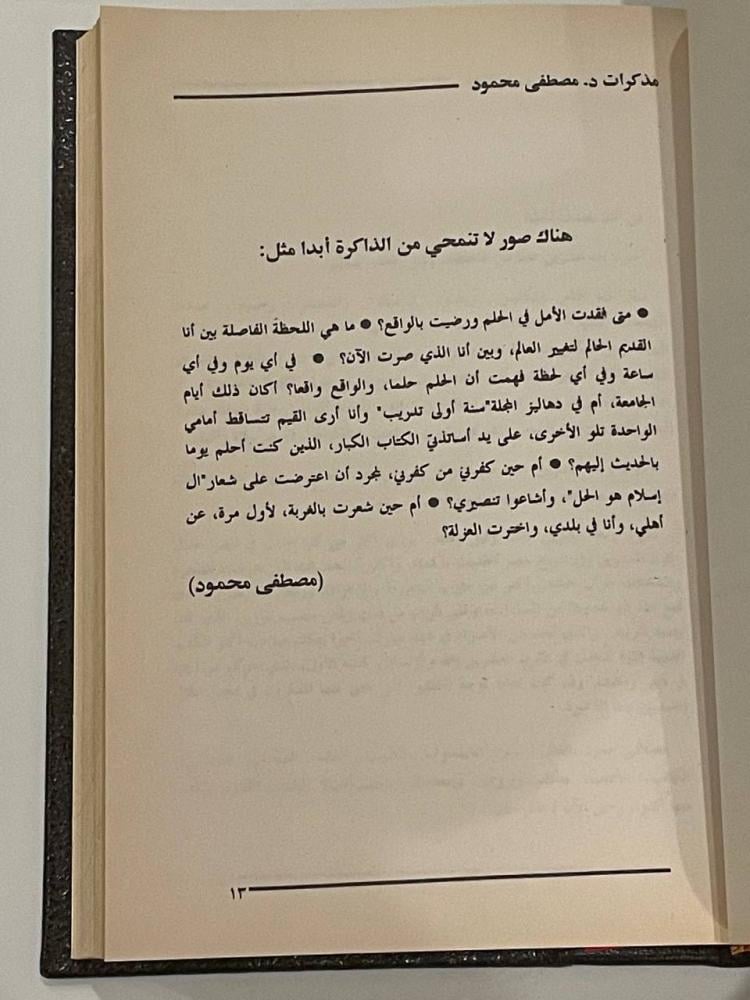 مذكرات د. مصطفى محمود
هناك صور لا تنمحي من الذاكرة أبدا مثل:
● متى فقدت الأمل في الحلم ورضيت بالواقع؟ ● ما هي اللحظة الفاصلة بين أنا
القديم الحالم لتغيير العالم، وبين أنا الذي صرت الآن؟ ● في أي يوم وفي أي
ساعة وفي أي لحظة فهمت أن الحلم حلما، والواقع واقعا؟ أكان ذلك أيام
الجامعة، أم في دهاليز المجلة"سنة أولى تدريب" وأنا أرى القيم تتساقط أمامي
الواحدة تلو الأخرى، على يد أساتذتي الكتاب الكبار، الذين كنت أحلم يوما
بالحديث إليهم؟ ● أم حين كفرني من كفرني، لمجرد أن اعترضت على شعار"ال
إسلام هو الحل"، وأشاعوا تنصيري؟ ● أم حين شعرت بالغربة، لأول مرة، عن
أهلي، وأنا في بلدي، واخترت العزلة؟
(مصطفى محمود)
١٣